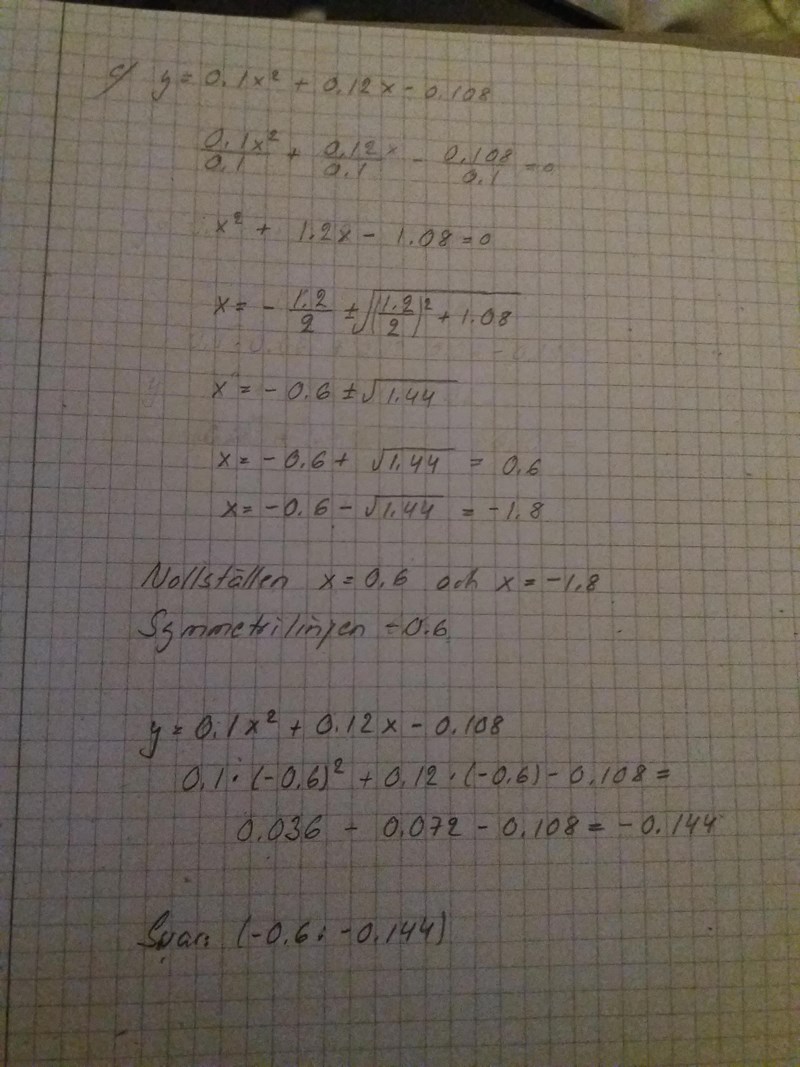 c) y = 0.1x² + 0.12x - 0.108
0.1x²/0.1 + 0.12x/0.1 - 0.108/0.1 = 0
x² + 1.2x - 1.08 = 0
x = - 1.2/2 ± √(1.2/2)² + 1.08
x = - 0.6 ± √1.44
x = - 0.6 + √1.44 = 0.6
x = - 0.6 - √1.44 = -1.8
Nollställen x = 0.6 och x = -1.8
Symmetrilinjen -0.6
y = 0.1x² + 0.12x - 0.108
0.1 · (-0.6)² + 0.12 · (-0.6) - 0.108 =
0.036 - 0.072 - 0.108 = -0.144
Svar: (-0.6; -0.144)